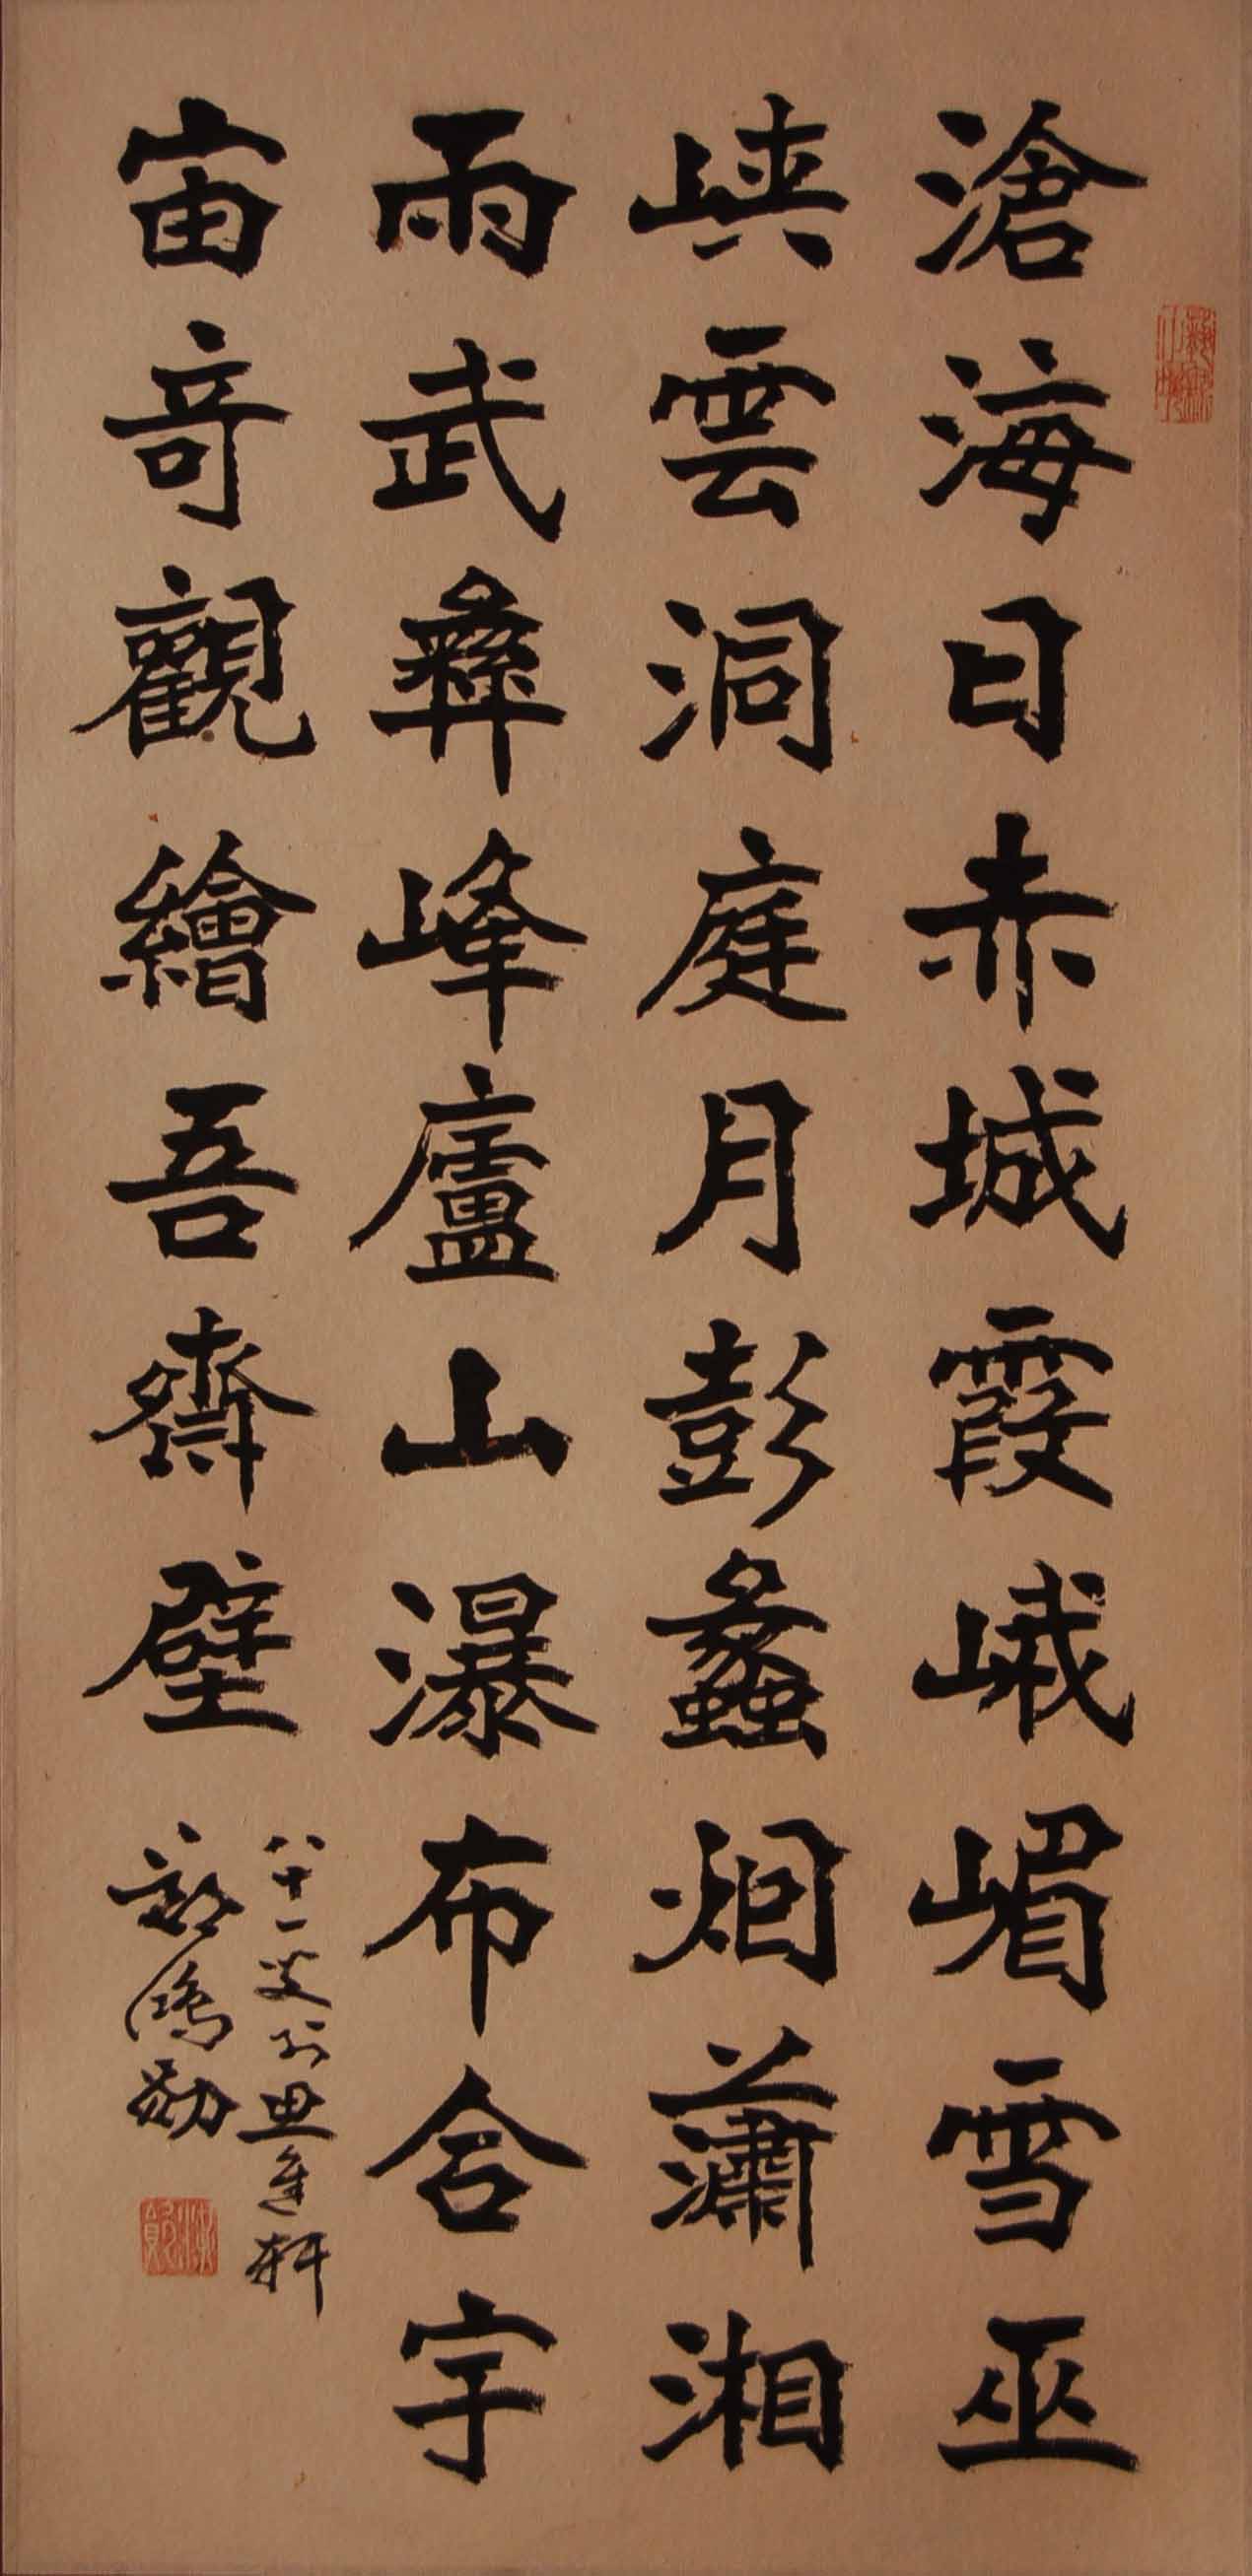 滄海日赤城霞峨嵋雪巫
峽雲洞庭月彭蠡烟瀟湘
雨武彝峰廬山瀑布合宇
宙奇觀繪吾齋壁
八十一叟於思進軒
鴻勛